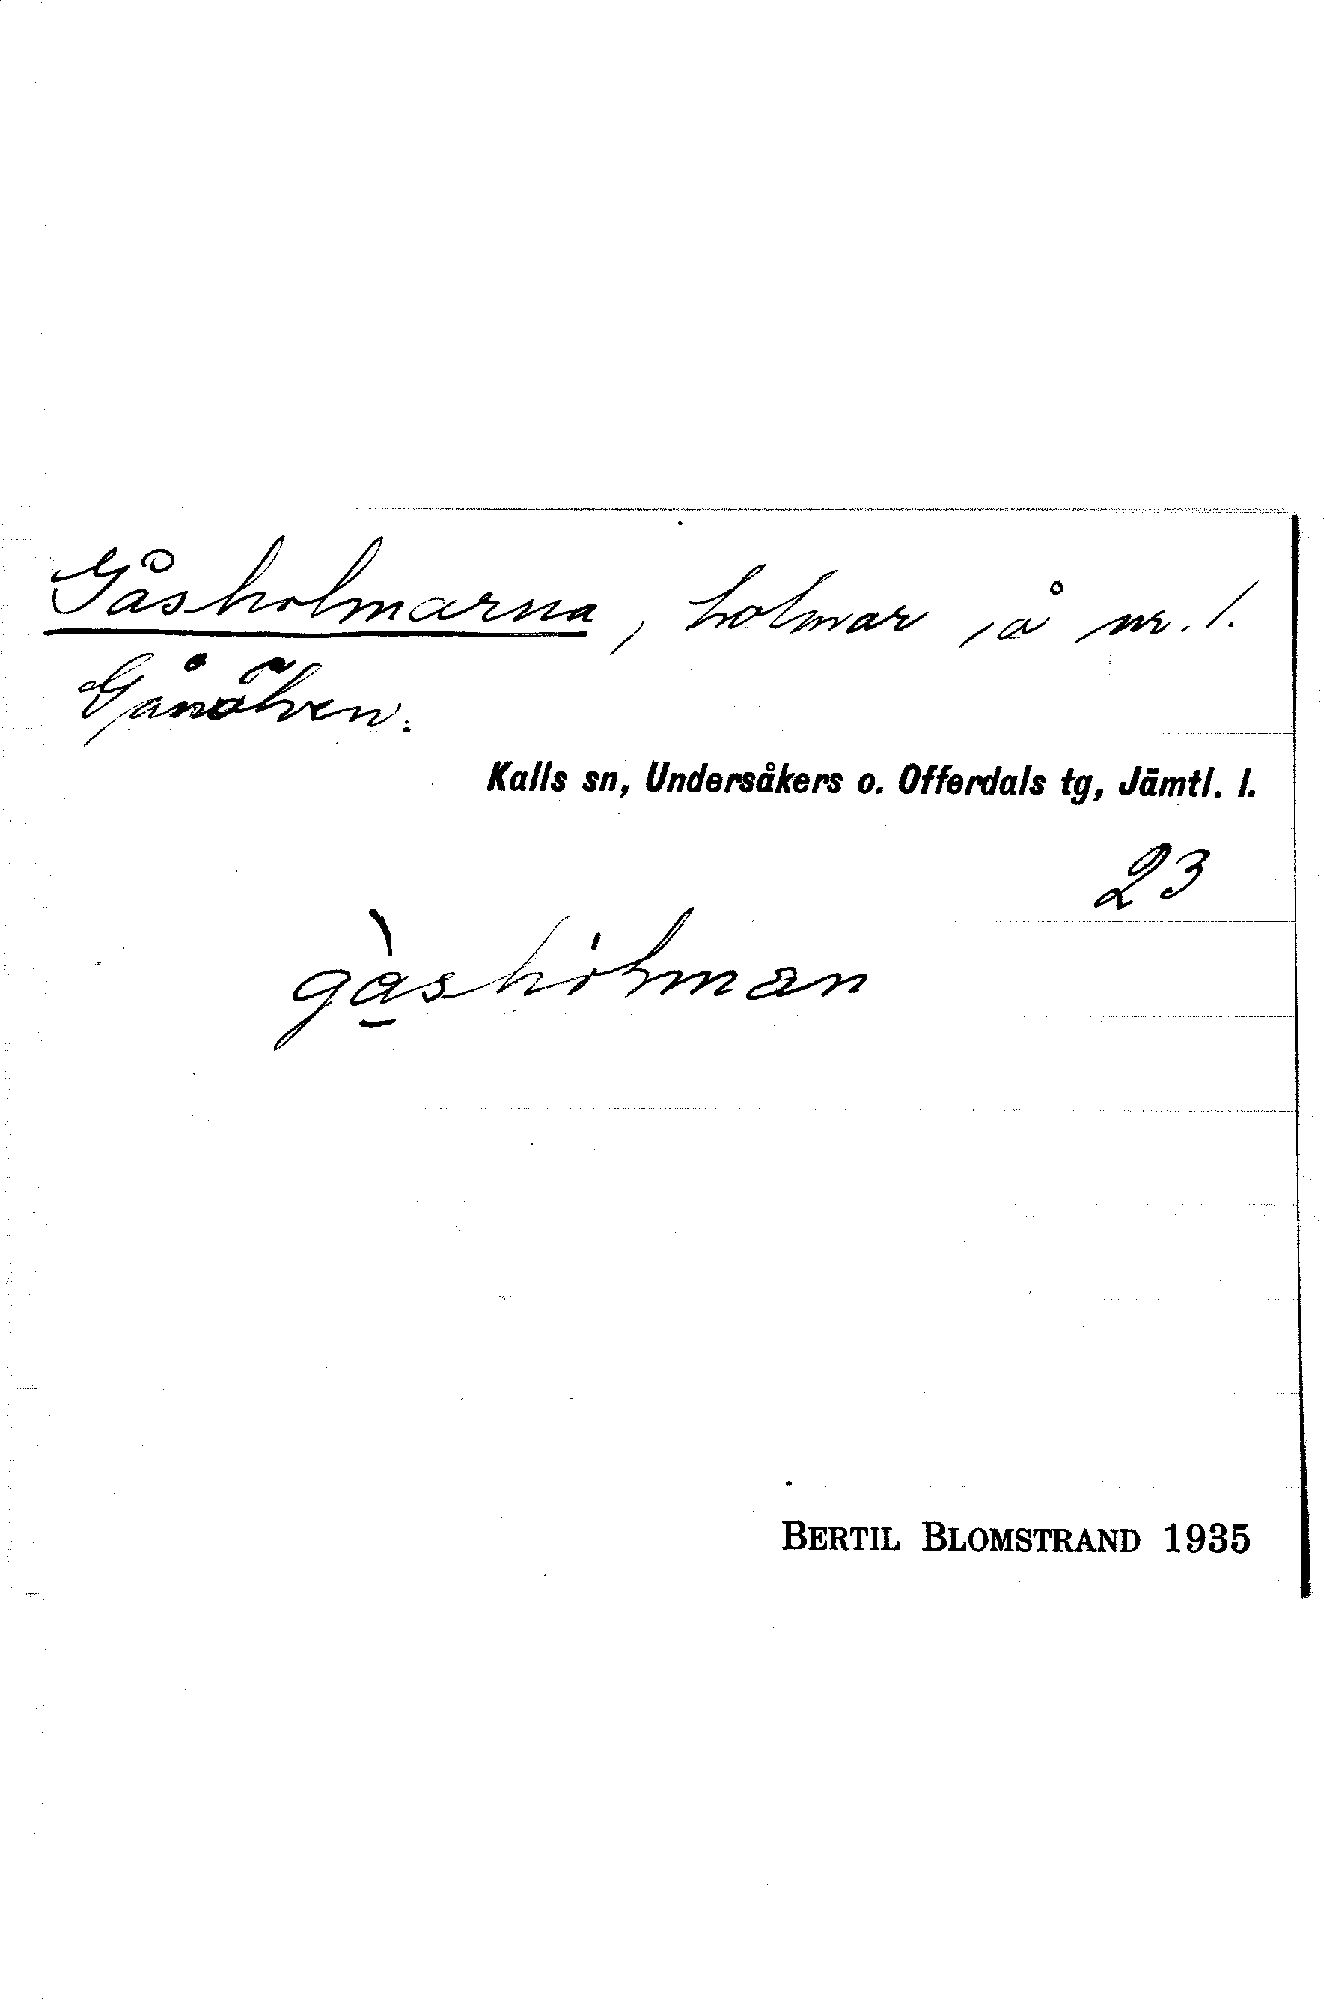 Gåsholmarna, holmar i å nr. 1.
Gånälven.
Kalls sn, Undersåkers o. Offerdals tg, Jämtl. l.
23
gà̱shólman
BERTIL BLOMSTRAND 1935